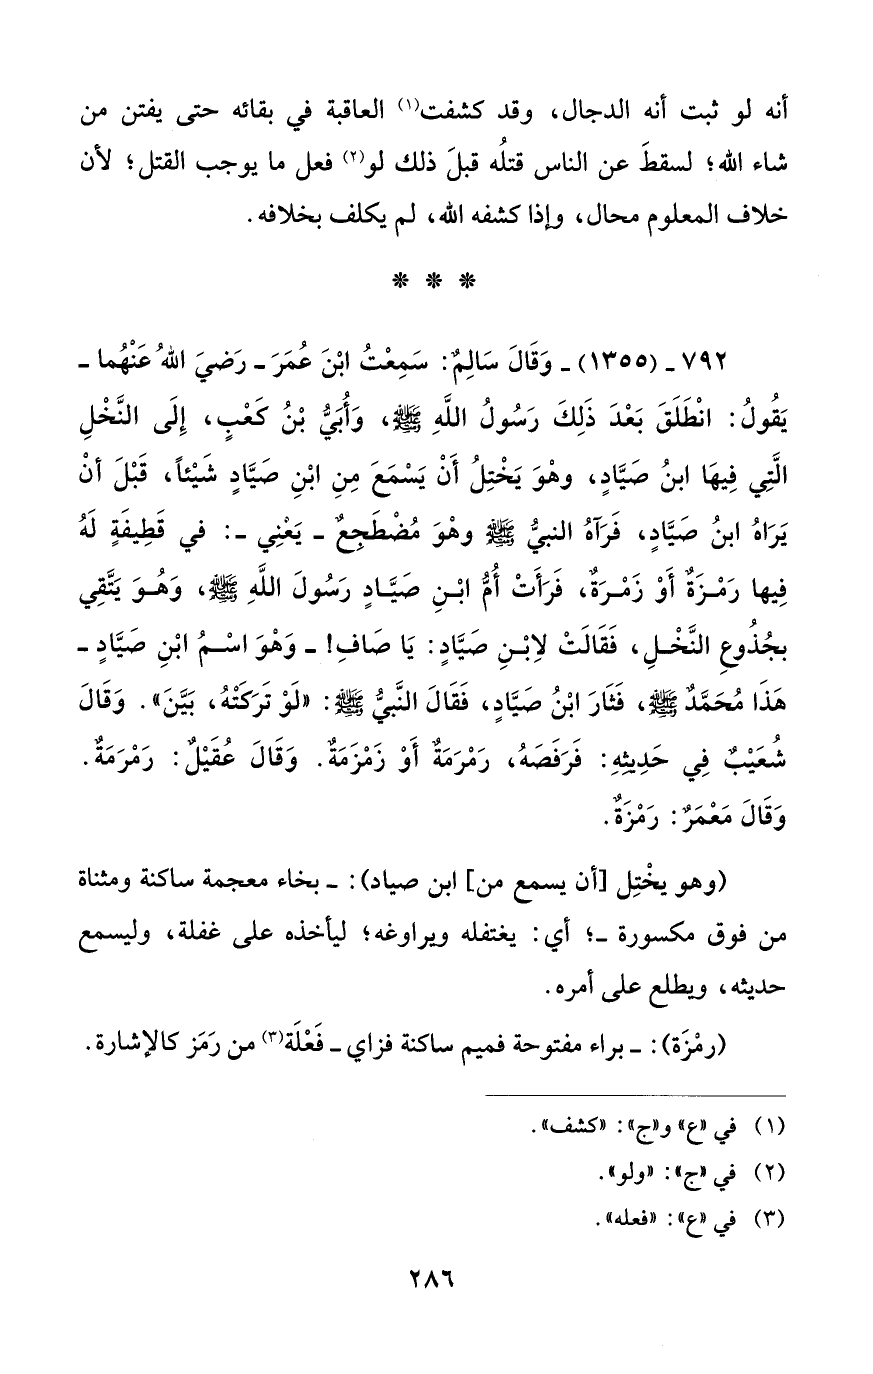 أنه لو ثبت أنه الدجال، وقد كشفت(١) العاقبة في بقائه حتى يفتن من
شاء الله؛ لسقطَ عن الناس قتلُه قبلَ ذلك لو(٢) فعل ما يوجب القتل؛ لأن
خلاف المعلوم محال، وإذا كشفه الله، لم يكلف بخلافه.
* * *
٧٩٢ ـ (١٣٥٥) ـ وَقَالَ سَالِمٌ: سَمِعْتُ ابْنَ عُمَرَ ـ رَضيَ اللهُ عَنْهُما ـ
يَقُولُ: انْطَلَقَ بَعْدَ ذَلِكَ رَسُولُ اللَّهِ ﷺ، وَأُبَيُّ بْنُ كَعْبٍ، إِلَى النَّخْلِ
الَّتِي فِيهَا ابنُ صَيَّادٍ، وهْوَ يَخْتِلُ أَنْ يَسْمَعَ مِنِ ابْنِ صَيَّادٍ شَيْئاً، قَبْلَ أنْ
يَرَاهُ ابنُ صَيَّادٍ، فَرَآهُ النبيُّ ﷺ وهْوَ مُضْطَجِعٌ ـ يَعْنِي ـ: في قَطِيفَةٍ لَهُ
فِيها رَمْزَةٌ أَوْ زَمْرَةٌ، فَرَأَتْ أُمُّ ابْنِ صَيَّادٍ رَسُولَ اللَّهِ ﷺ، وَهُوَ يَتَّقِي
بِجُذُوعِ النَّخْلِ، فَقَالَتْ لاِبْنِ صَيَّادٍ: يَا صَافِ! ـ وَهْوَ اسْمُ ابْنِ صَيَّادٍ ـ
هَذَا مُحَمَّدٌ ﷺ، فَثَارَ ابْنُ صَيَّادٍ، فَقَالَ النَّبيُّ ﷺ: «لَوْ تَرَكَتْهُ، بَيَّنَ». وَقَالَ
شُعَيْبٌ فِي حَدِيثِهِ: فَرَفَصَهُ، رَمْرَمَةٌ أَوْ زَمْزَمَةٌ. وَقَالَ عُقَيْلٌ: رَمْرَمَةٌ.
وَقَالَ مَعْمَرٌ: رَمْزَةٌ.
(وهو يخْتِل [أن يسمع من] ابن صياد): ـ بخاء معجمة ساكنة ومثناة
من فوق مكسورة ـ؛ أي: يغتفله ويراوغه؛ ليأخذه على غفلة، وليسمع
حديثه، ويطلع على أمره.
(رمْزَة): ـ براء مفتوحة فميم ساكنة فزاي ـ فَعْلَة(٣) من رَمَز كالإشارة.
(١) في «ع» و«ج»: «كشف».
(٢) في «ج»: «ولو».
(٣) في «ع»: «فعله».
٢٨٦